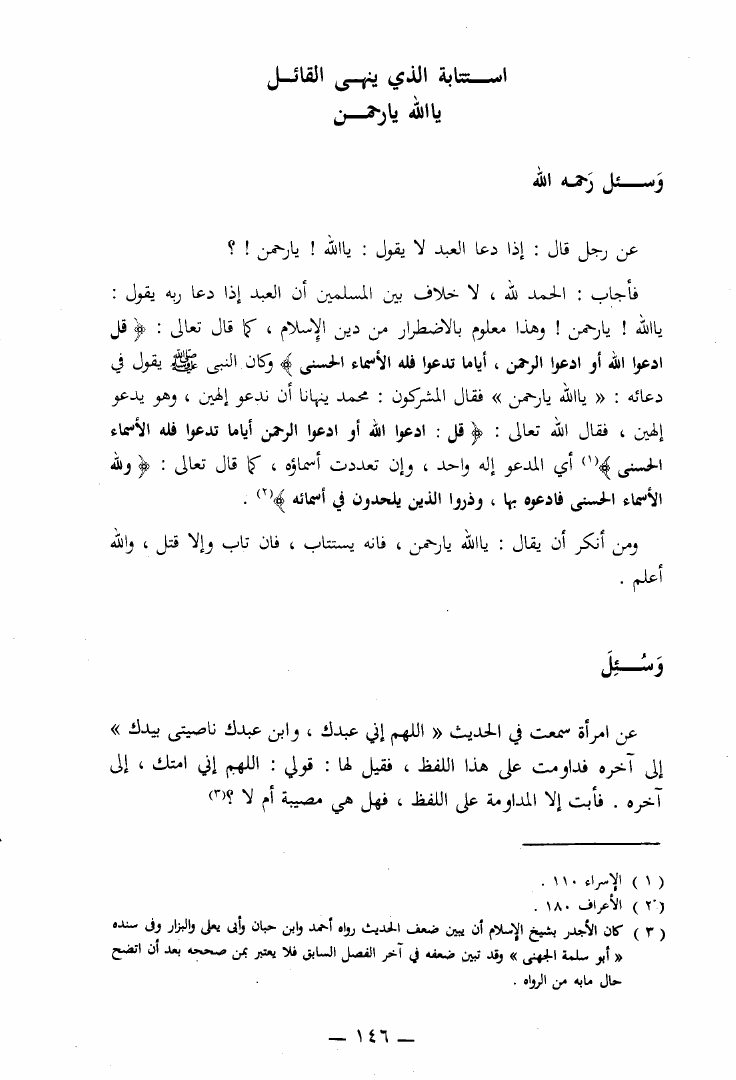 استتابة الذي ينهى القائل
ياالله يارحمن
وَسئل رَحمه الله
عن رجل قال : إذا دعا العبد لا يقول : ياالله ! يارحمن ! ؟
فأجاب : الحمد لله ، لا خلاف بين المسلمين أن العبد إذا دعا ربه يقول :
ياالله ! يارحمن ! وهذا معلوم بالاضطرار من دين الإسلام ، كما قال تعالى : ﴿ قل
ادعوا الله أو ادعوا الرحمن ، أياما تدعوا فله الأسماء الحسنى ﴾ وكان النبي ﷺ يقول في
دعائه : « ياالله يارحمن » فقال المشركون : محمد ينهانا أن ندعو إلهين ، وهو يدعو
إلهين ، فقال الله تعالى : ﴿ قل : ادعوا الله أو ادعوا الرحمن أياما تدعوا فله الأسماء
الحسنى ﴾(١) أي المدعو إله واحد ، وإن تعددت أسماؤه ، كما قال تعالى : ﴿ ولله
الأسماء الحسنى فادعوه بها ، وذروا الذين يلحدون في أسمائه ﴾(٢) .
ومن أنكر أن يقال : ياالله يارحمن ، فانه يستتاب ، فان تاب وإلا قتل ، والله
أعلم .
وَسُئِلَ
عن امرأة سمعت في الحديث « اللهم إني عبدك ، وابن عبدك ناصيتى بيدك »
إلى آخره فداومت على هذا اللفظ ، فقيل لها : قولي : اللهم إني امتك ، إلى
آخره . فأبت إلا المداومة على اللفظ ، فهل هي مصيبة أم لا ؟(٣)
( ١ ) الإسراء ١١٠ .
( ٢ ) الأعراف ١٨٠ .
( ٣ ) كان الأجدر بشيخ الإسلام أن يبين ضعف الحديث رواه أحمد وابن حبان وأبى يعلى والبزار وفى سنده
« أبو سلمة الجهنى » وقد تبين ضعفه في آخر الفصل السابق فلا يعتبر بمن صححه بعد أن اتضح
حال مابه من الرواه .
— ١٤٦ —